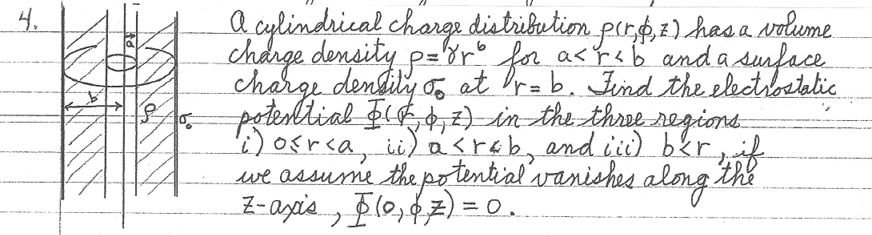 4. A cylindrical charge distribution ρ(r,ϕ,z) has a volume
charge density ρ=γr⁶ for a<r<b and a surface
charge density σ₀ at r=b. Find the electrostatic
potential Φ(r,ϕ,z) in the three regions
i) 0≤r<a, ii) a<r<b, and iii) b<r, if
we assume the potential vanishes along the
z-axis, Φ(0,ϕ,z)=0.
a
b
ρ
σ₀